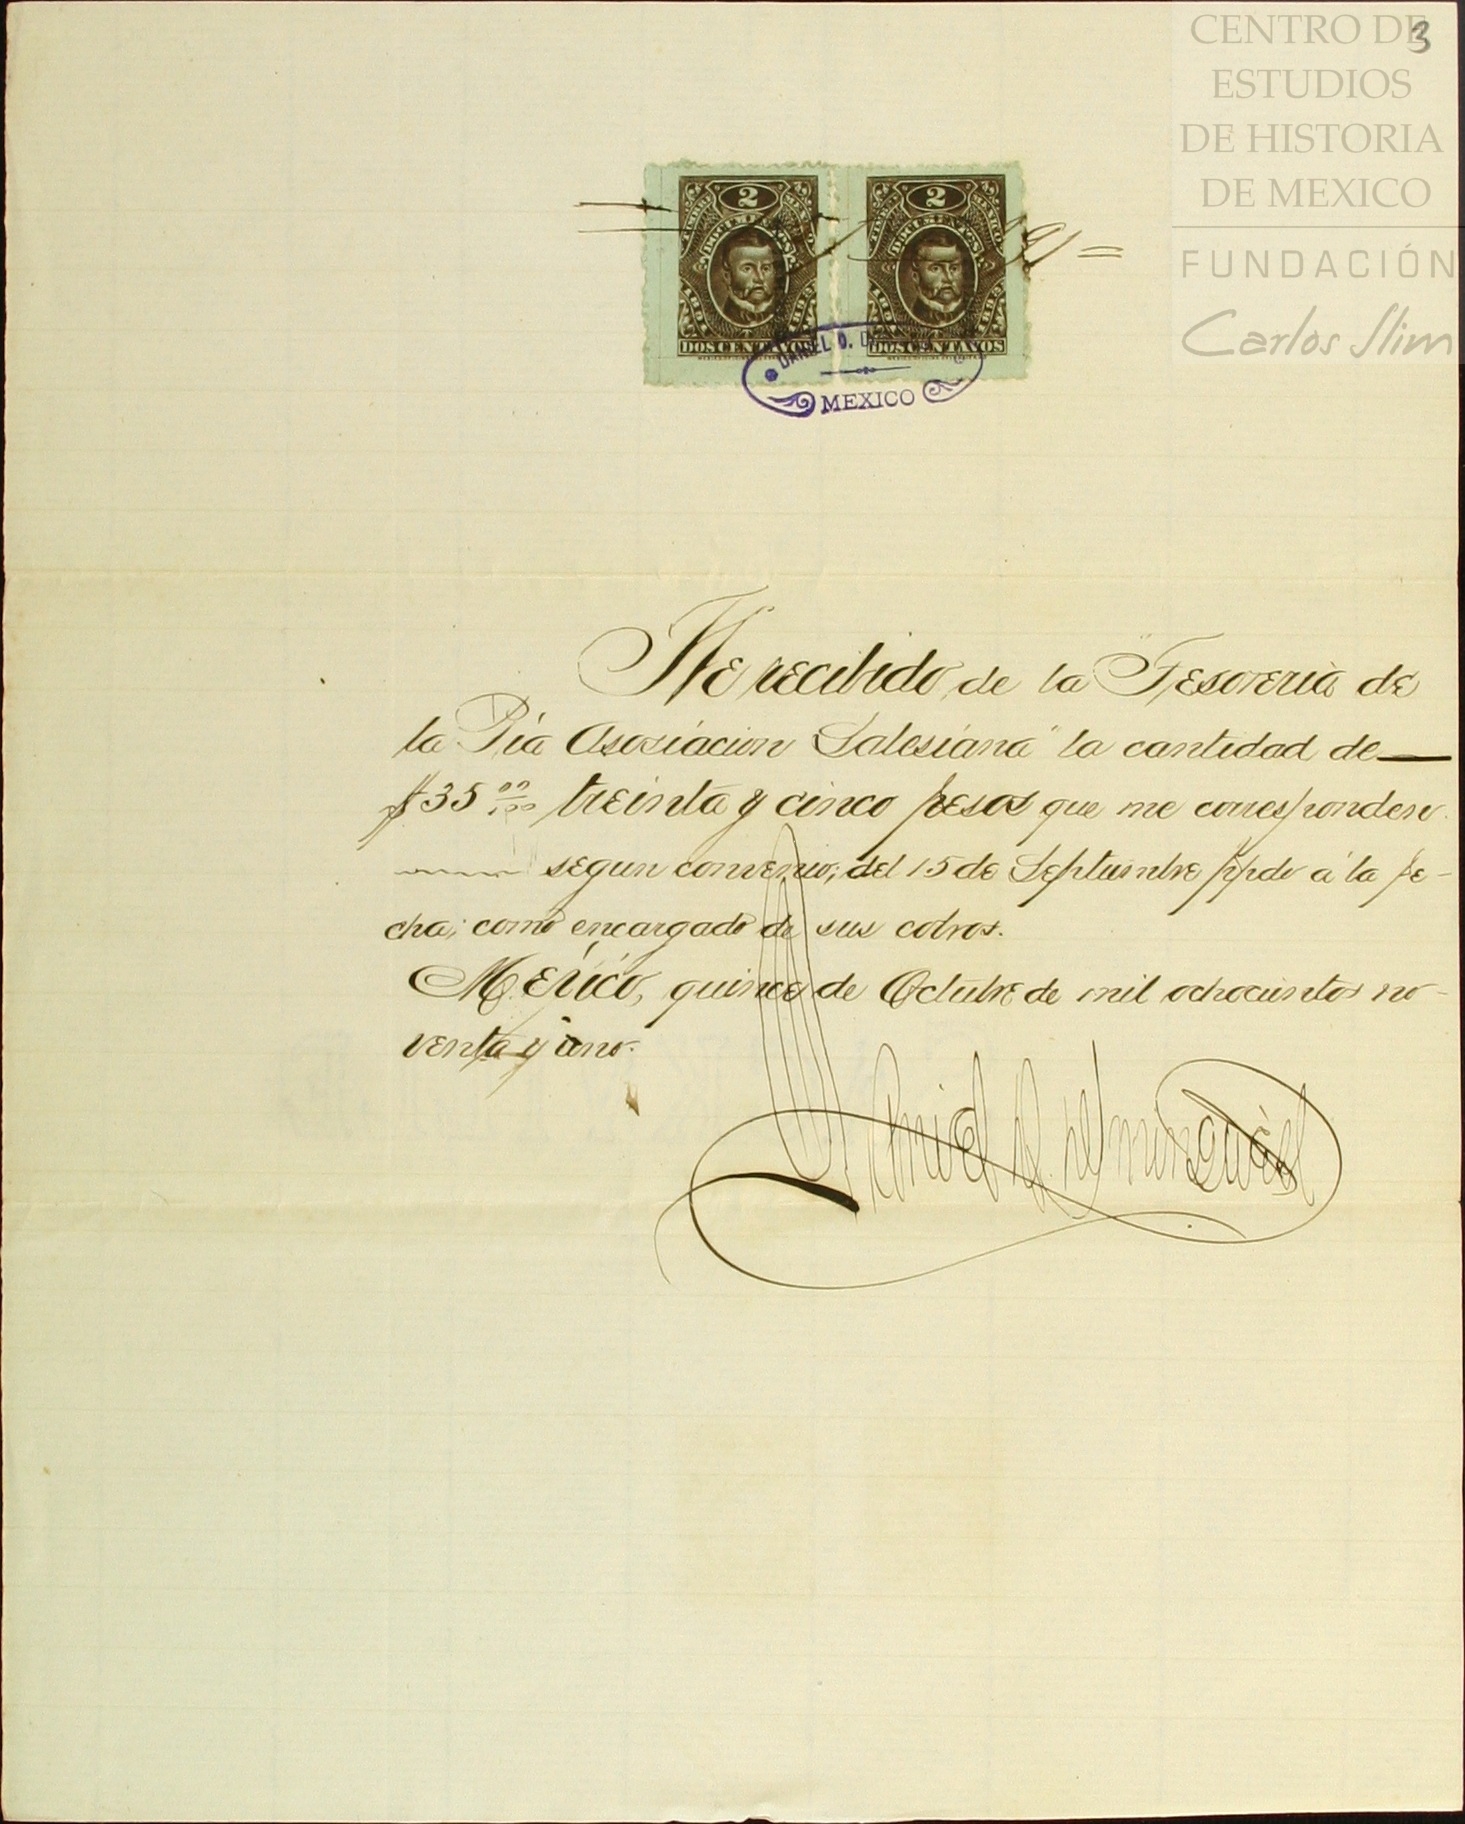 CENTRO DE
ESTUDIOS
DE HISTORIA
DE MEXICO
FUNDACIÓN
Carlos Slim
3
2 2
DOS CENTAVOS DOS CENTAVOS
DANIEL D.
MEXICO
He recibido de la "Tesoreria de
la Pía Asociacion Salesiana" la cantidad de
$35 00/100 treinta y cinco pesos que me corresponden
segun convenio; del 15 de Septiembre ppdo á la fe-
cha; como encargado de sus cobros.
México, quince de Octubre de mil ochocientos no-
venta y uno.
Daniel D. Dominguez